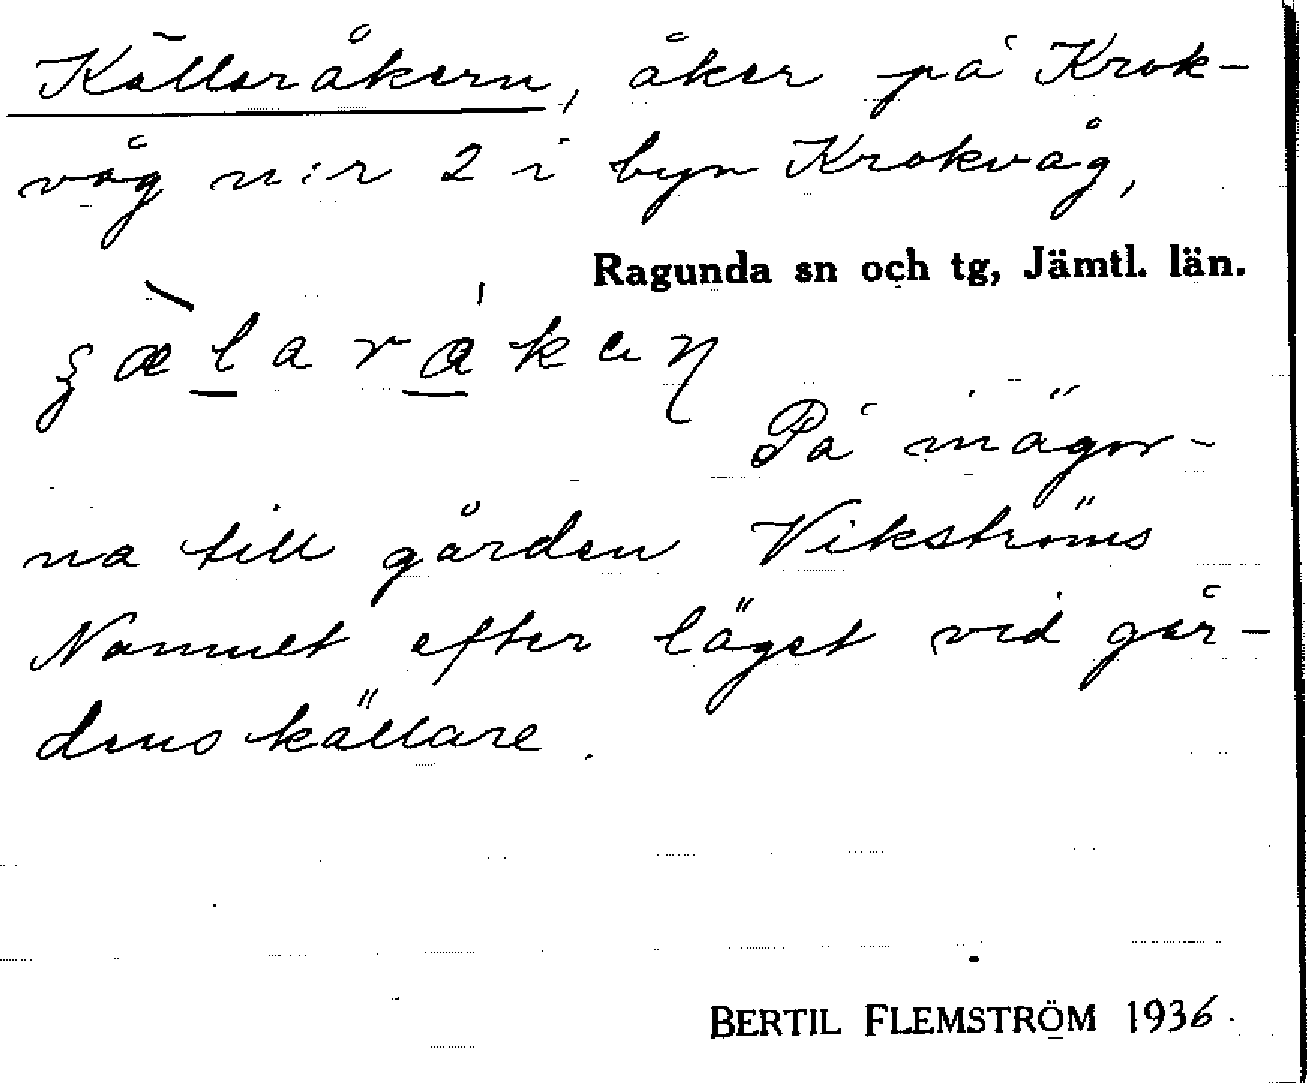 Källeråkern, åker på Krok-
våg n:r 2 i byn Krokvåg,
Ragunda sn och tg, Jämtl. län.
På inägor-
na till gården Vikströms
Namnet efter läget vid går-
dens källare.
BERTIL FLEMSTRÖM 1936.